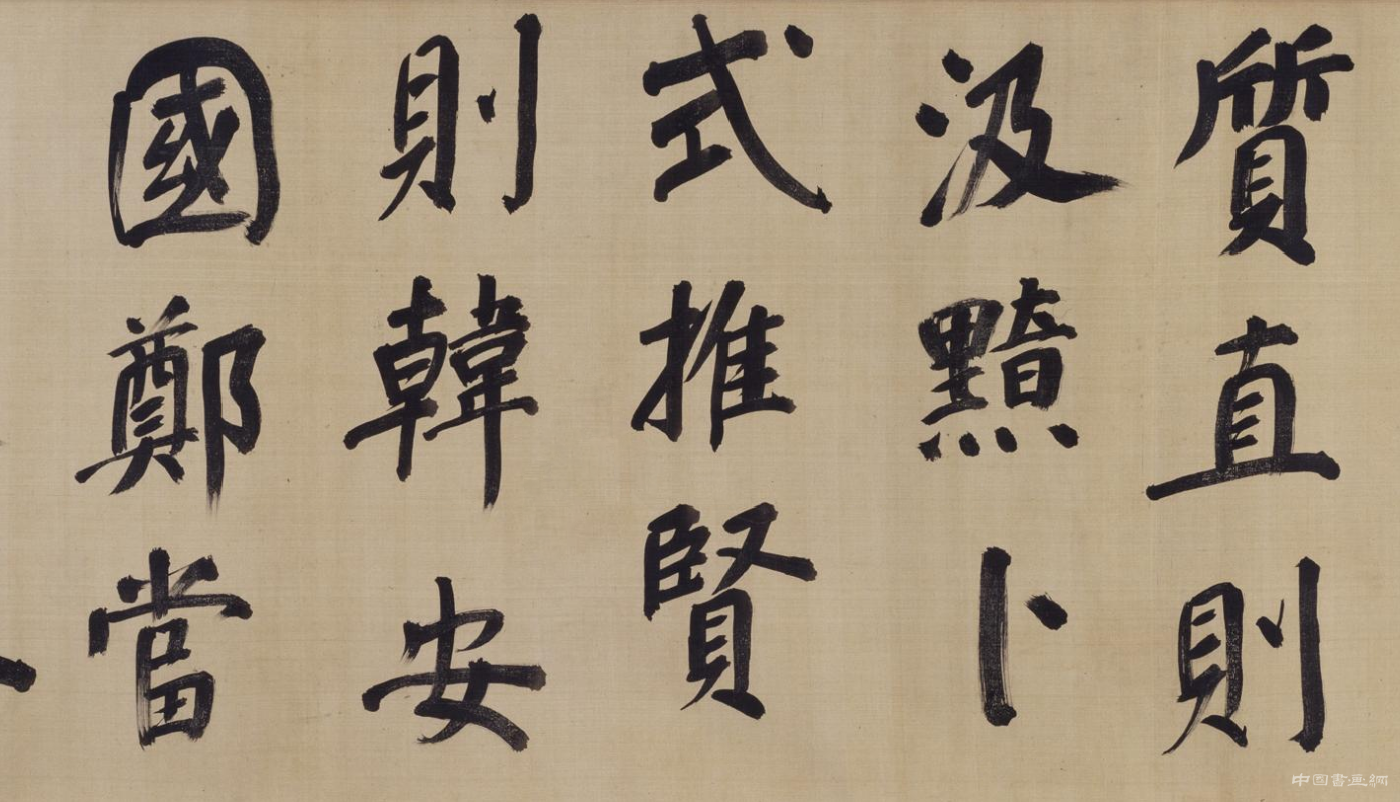 質直則
汲黯卜
式推賢
則韓安
國鄭當
中国書画網